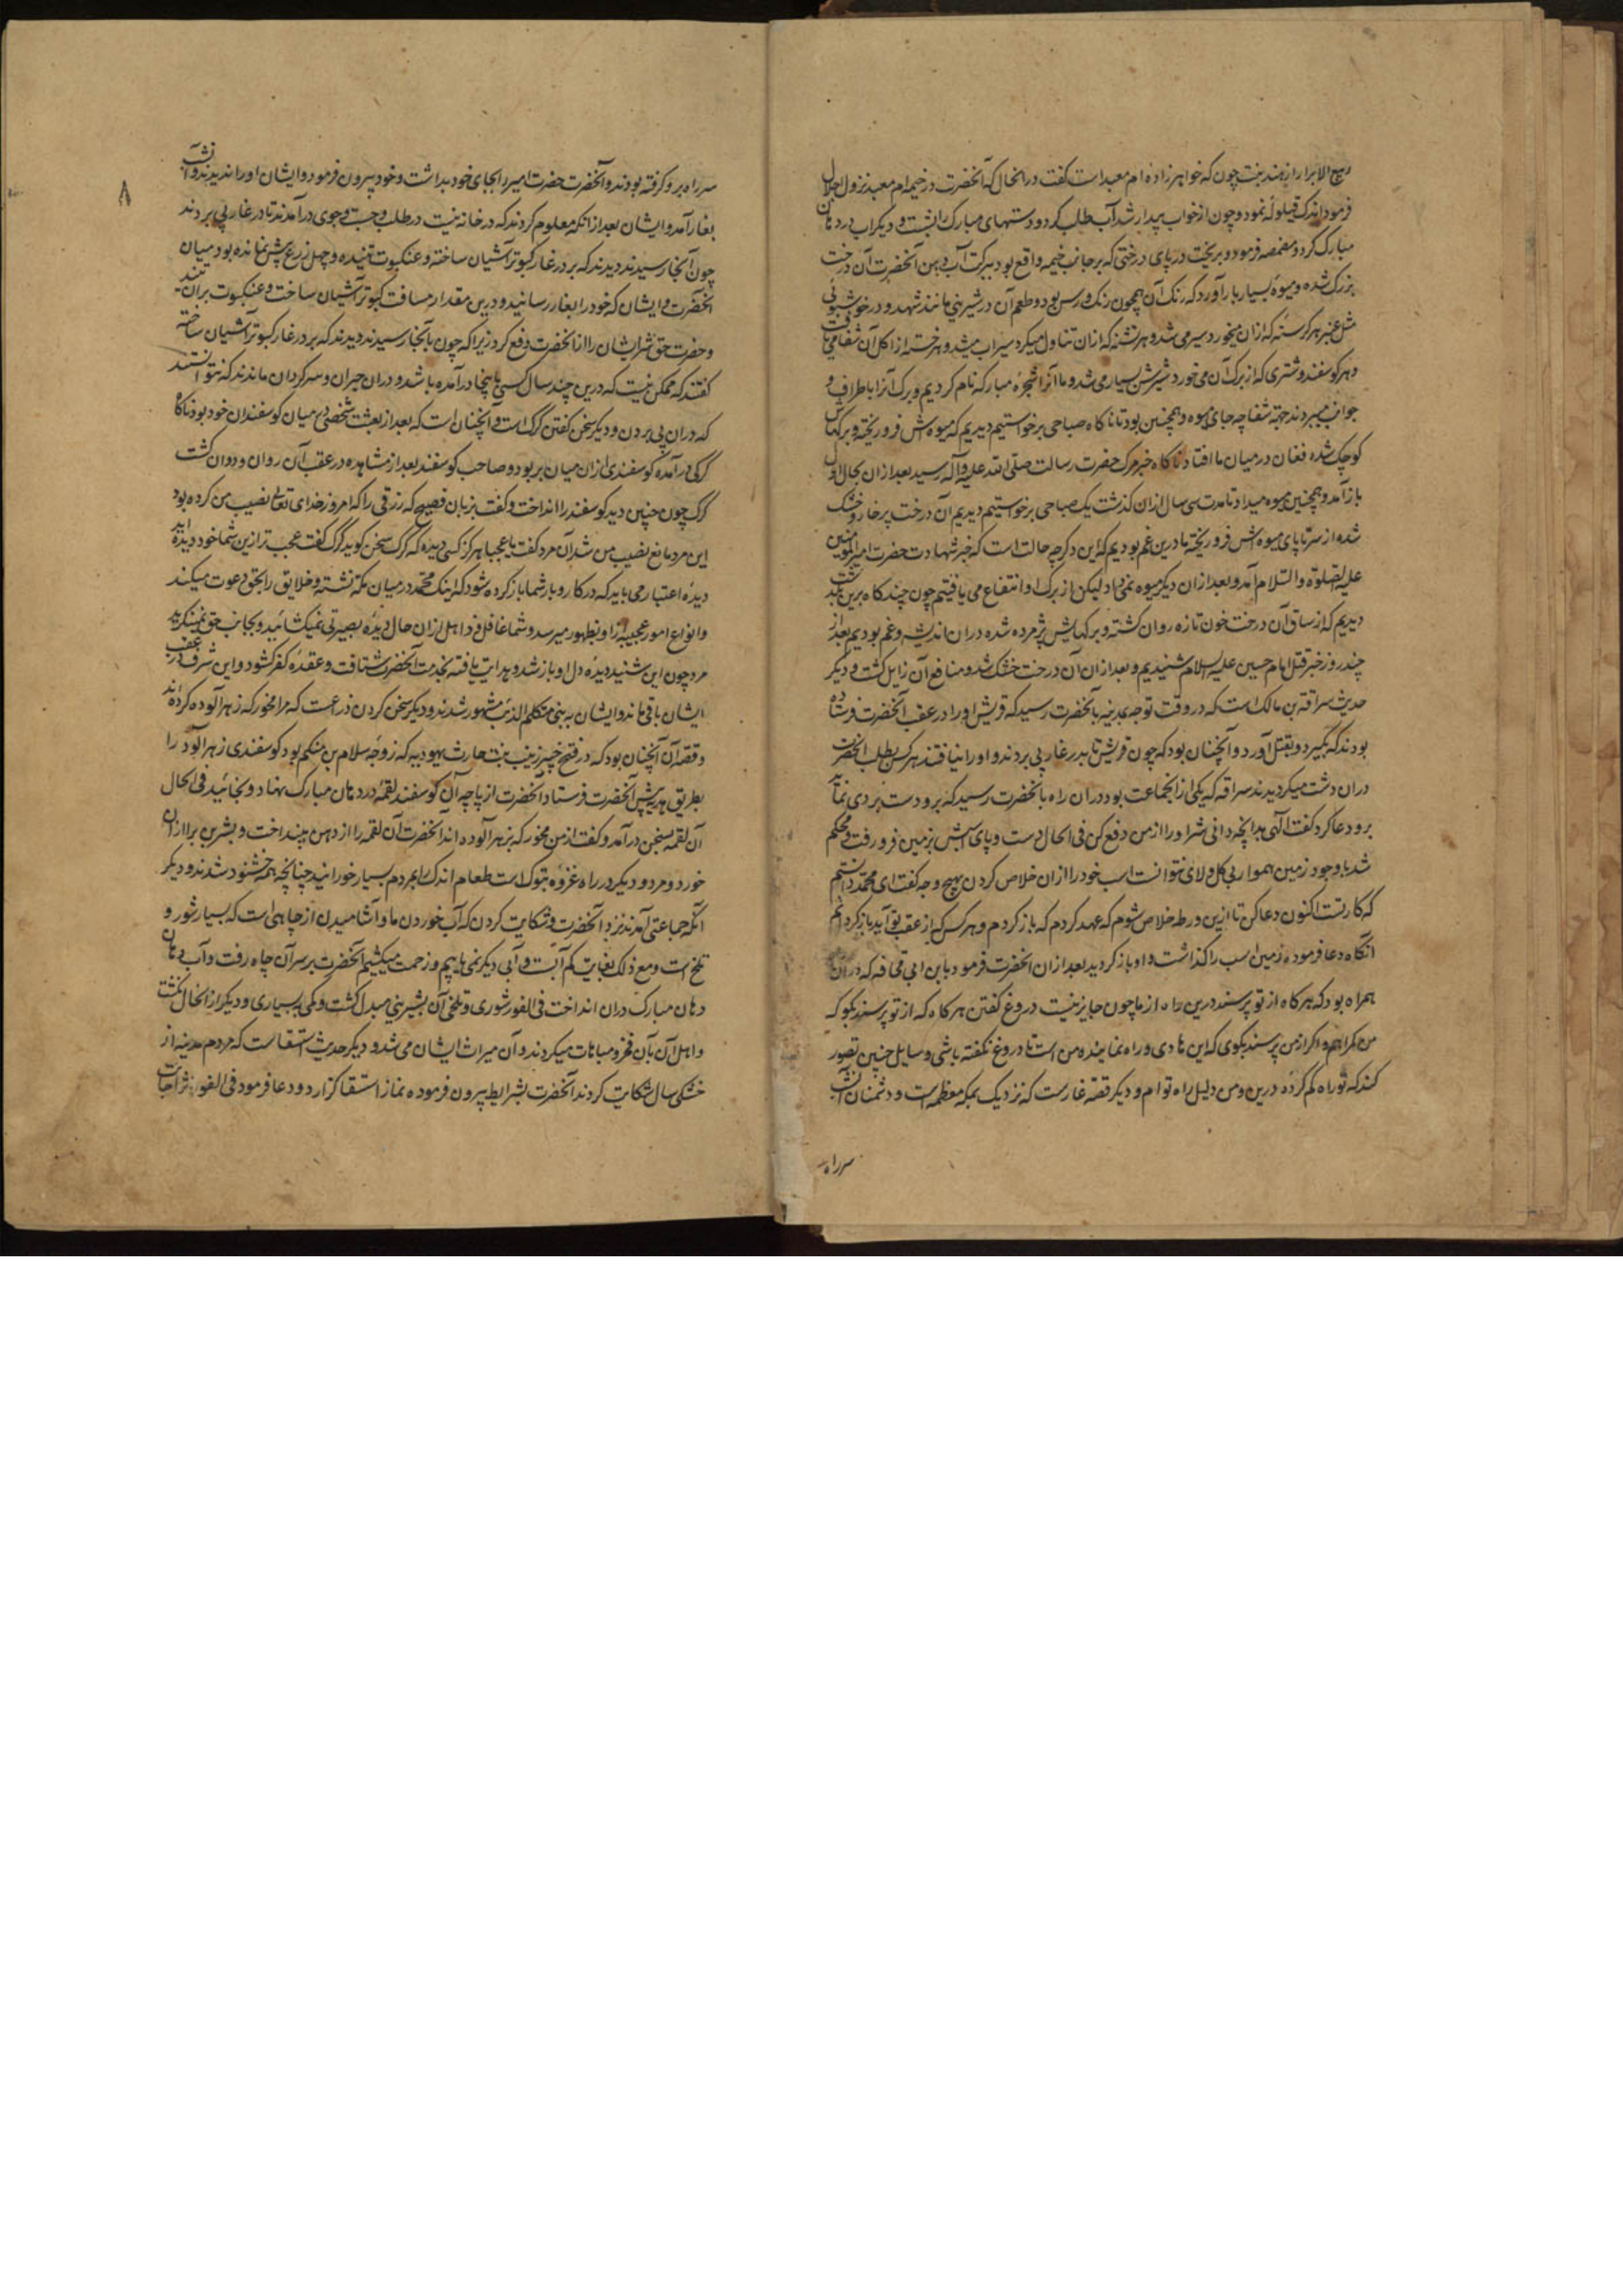 ربیع الابرار از هند بنت جون که خواهرزاده ام معبد است گفت در انحال که آنحضرت در خیمه ام معبد نزول اجلال
فرمود اندک قیلوله نمود و چون از خواب بیدار شد آب طلب کرد و دستهای مبارک را بشست و دیگر آب در دهان
مبارک کرد و مضمضه فرمود و بریخت در پای درختی که بر جانب خیمه واقع بود ببرکت آب دهن آنحضرت آن درخت
بزرک شده و میوهٔ بسیار بار آورد که رنک آن همچون رنک ورس بود و طعم آن در شیرینی مانند شهد و در خوشبوئی
مثل عنبر هر کرسنه که ازان میخورد سیر می شد و هر تشنه که ازان تناول میکرد سیراب میشد و هر خسته از اکل آن شفا می یافت
و هر کوسفند و شتری که از برک آن می خورد شیرش بسیار می شد و ما آنرا شجرهٔ مبارکه نام کردیم و برک آنرا باطراف و
جوانب میبردند جهة شفا چه جای میوه و همچنین بود تا ناکاه صباحی برخواستیم دیدیم که میوه اش فرو ریخته و برکهاش
کوچک شده فغان در میان ما افتاد ناکاه خبر مرک حضرت رسالت صلی الله علیه و آله رسید بعد ازان بحال اول
باز آمد و همچنین میوه میداد تا مدت سی سال ازان کذشت یک صباحی برخواستیم دیدیم آن درخت پر خار و خشک
شده از سر تا پای میوه اش فرو ریخته ما درین غم بودیم که این دکر چه حالت است که خبر شهادت حضرت امیرالمومنین
علیه الصلوة والسلام آمد و بعد ازان دیکر میوه نمی داد لیکن از برک او انتفاع می یافتیم چون چند کاه برین بگذشت
دیدیم که از ساق آن درخت خون تازه روان کشته و برکهایش پژمرده شده دران اندیشه و غم بودیم بعد از
چند روز خبر قتل امام حسین علیه السلام شنیدیم و بعد ازان آن درخت خشک شد و منافع آن زایل کشت و دیکر
حدیث سراقة بن مالک است که در وقت توجه مدینه بآنحضرت رسید که قریش او را در عقب آنحضرت فرستاده
بودند که بگیرد و بقتل آورد و آنچنان بود که چون قریش تا بدر غار پی بردند و او را نیافتند هر کس بطلب آنحضرت
دران دشت میکردیدند سراقه که یکی از انجماعت بود دران راه بآنحضرت رسید که برو دست بردی نماید
برو دعا کرد کفت الهی بدانچه دانی شر او را از من دفع کن فی الحال دست و پای اسبش بزمین فرو رفت و محکم
شد با وجود زمین هموار بی کل و لای نتوانست اسب خود را ازان خلاص کردن بهیچ وجه کفت ای محمد دانستم
که کار تست اکنون دعا کن تا ازین ورطه خلاص شوم که عهد کردم که باز کردم و هر کس که از عقب تو آید باز کردانم
انکاه دعا فرموده زمین اسب را کذاشت و او باز کردید بعد ازان آنحضرت فرمود بابن ابی قحافه که دران
همراه بود که هر کاه از تو پرسند درین راه از ما چون جایز نیست دروغ کفتن هر کاه که از تو پرسند بکو که
من کمراهم و اکر از من پرسند بکوی که این هادی و راه نماینده من است تا دروغ نکفته باشی و سایل چنین تصور
کند که تو راه کم کردهٔ درین و من دلیل راه توام و دیکر قصهٔ غار است که نزدیک بمکه معظمه است و دشمنان آنشب
سر راه
۸
سر راه برو کرفته بودند و آنحضرت حضرت امیر را بجای خود بداشت و خود بیرون فرمود و ایشان او را ندیدند و آنشب
بغار آمد و ایشان بعد از انکه معلوم کردند که در خانه نیست در طلب و جست و جوی درآمدند تا در غار پی بردند
چون آنجا رسیدند دیدند که بر در غار کبوتر آشیان ساخته و عنکبوت تنیده و چهل زرع پیش نمانده بود میان
آنحضرت و ایشان که خود را بغار رسانید و درین مقدار مسافت کبوتر آشیان ساخت و عنکبوت بران تنید
و حضرت حق شر ایشان را از آنحضرت دفع کرد زیرا که چون بآنجا رسیدند دیدند که بر در غار کبوتر آشیان ساخته
کفتند که ممکن نیست که درین چند سال کسی باینجا درآمده باشد و دران حیران و سرکردان ماندند که نتوانستند
که دران پی بردن و دیکر سخن کفتن کرک است و آنچنان است که بعد از بعثت شخصی در میان کوسفندان خود بود ناکاه
کرکی درآمده کوسفندی ازان میان بربود و صاحب کوسفند بعد از مشاهده در عقب آن روان و دوان کشت
کرک چون چنین دید کوسفند را انداخت و کفت بزبان فصیح که رزقی را که امروز خدای تعالی نصیب من کرده بود
این مرد مانع نصیب من شد آن مرد کفت یا عجبا هرکز کسی دیده که کرک سخن کوید کرک کفت عجب تر ازین شما خود دیده اید
دیدهٔ اعتبار می باید که در کار و بار شما باز کرده شود که اینک محمد در میان مکه نشسته و خلایق را بحق دعوت میکند
و انواع امور عجیبه ازو بظهور میرسد و شما غافل و ذاهل ازان حال دیدهٔ بصیرتی نمیکشائید و بجانب حق نمینکرید
مرد چون این شنید دیدهٔ دل او باز شد و هدایت یافته بخدمت آنحضرت شتافت و عقدهٔ کفر کشود و این شرف در عقب
ایشان باقی ماند و ایشان به بنی متکلم الذئب مشهور شدند و دیکر سخن کردن ذراعست که مرا مخور که زهر آلوده کرده اند
و قصهٔ آن آنچنان بود که در فتح خیبر زینب بنت حارث یهودیه که زوجه سلام بن مشکم بود کوسفندی زهر آلود را
بطریق هدیه پیش آنحضرت فرستاد آنحضرت از پاچه آن کوسفند لقمه در دهان مبارک نهاد و بخائید فی الحال
آن لقمه بسخن درآمد و کفت از من مخور که بزهر آلوده اند آنحضرت آن لقمه را از دهن بینداخت و بشر بن برا ازان
خورد و مرد و دیکر در راه غزوه تبوک است طعام اندک را بمردم بسیار خورانید چنانچه همه خشنود شدند و دیکر
آنکه جماعتی آمدند نزد آنحضرت و شکایت کردن که آب خوردن ما و آشامیدن از چاهی است که بسیار شور و
تلخ است و مع ذلک بغایت کم آبست و آبی دیکر نمی یابیم و زحمت میکشیم آنحضرت بر سر آن چاه رفت و آب دهان
دهان مبارک دران انداخت فی الفور شوری و تلخی آن بشیرینی مبدل کشت و کمی به بسیاری و دیکر از انحال نکشت
و اهل آن بآن فخر و مباهات میکردند و آن میراث ایشان می شد و دیکر حدیث استسقا است که مردم مدینه از
خشکی سال شکایت کردند آنحضرت بشرایط بیرون فرموده نماز استسقا کزارد و دعا فرمود فی الفور اثر اجابت